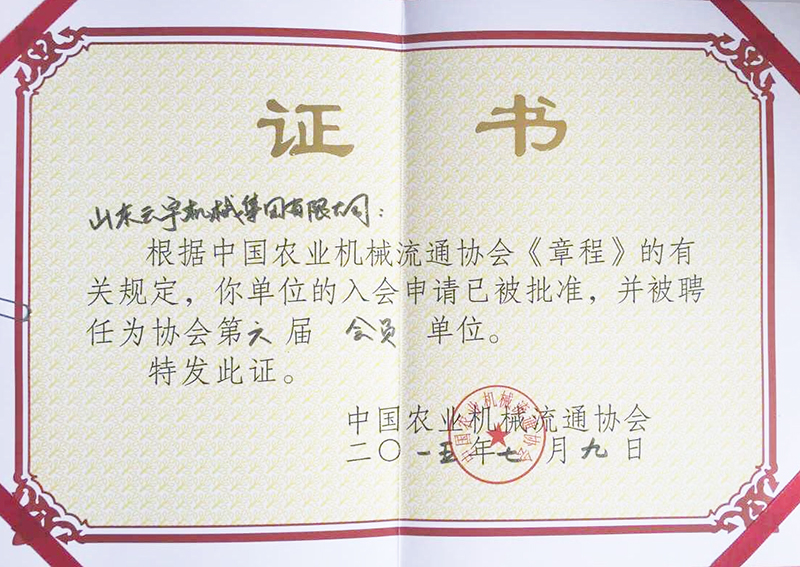 证书
山东云宇机械集团有限公司：
根据中国农业机械流通协会《章程》的有
关规定，你单位的入会申请已被批准，并被聘
任为协会第六届 会员 单位。
特发此证。
中国农业机械流通协会
二〇一五年七月九日
中国农业机械流通协会